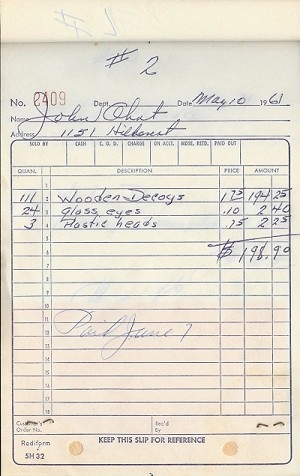 # 2
No. 2409 Dept. Date May 10 1961
Name John Obst
Address 1151 Hillcrest
SOLD BY CASH C. O. D. CHARGE ON ACCT. MDSE. RETD. PAID OUT
QUAN. DESCRIPTION PRICE AMOUNT
1
111 2 Wooden Decoys 1.75 194 25
24 3 Glass eyes .10 2 40
3 4 Plastic heads .75 2 25
5
6 $ 198.90
7
8
9
10
11
12 Paid June 7
13
14
15
16
17
18
Customer's Order No. Rec'd By
Rediform KEEP THIS SLIP FOR REFERENCE
5H32